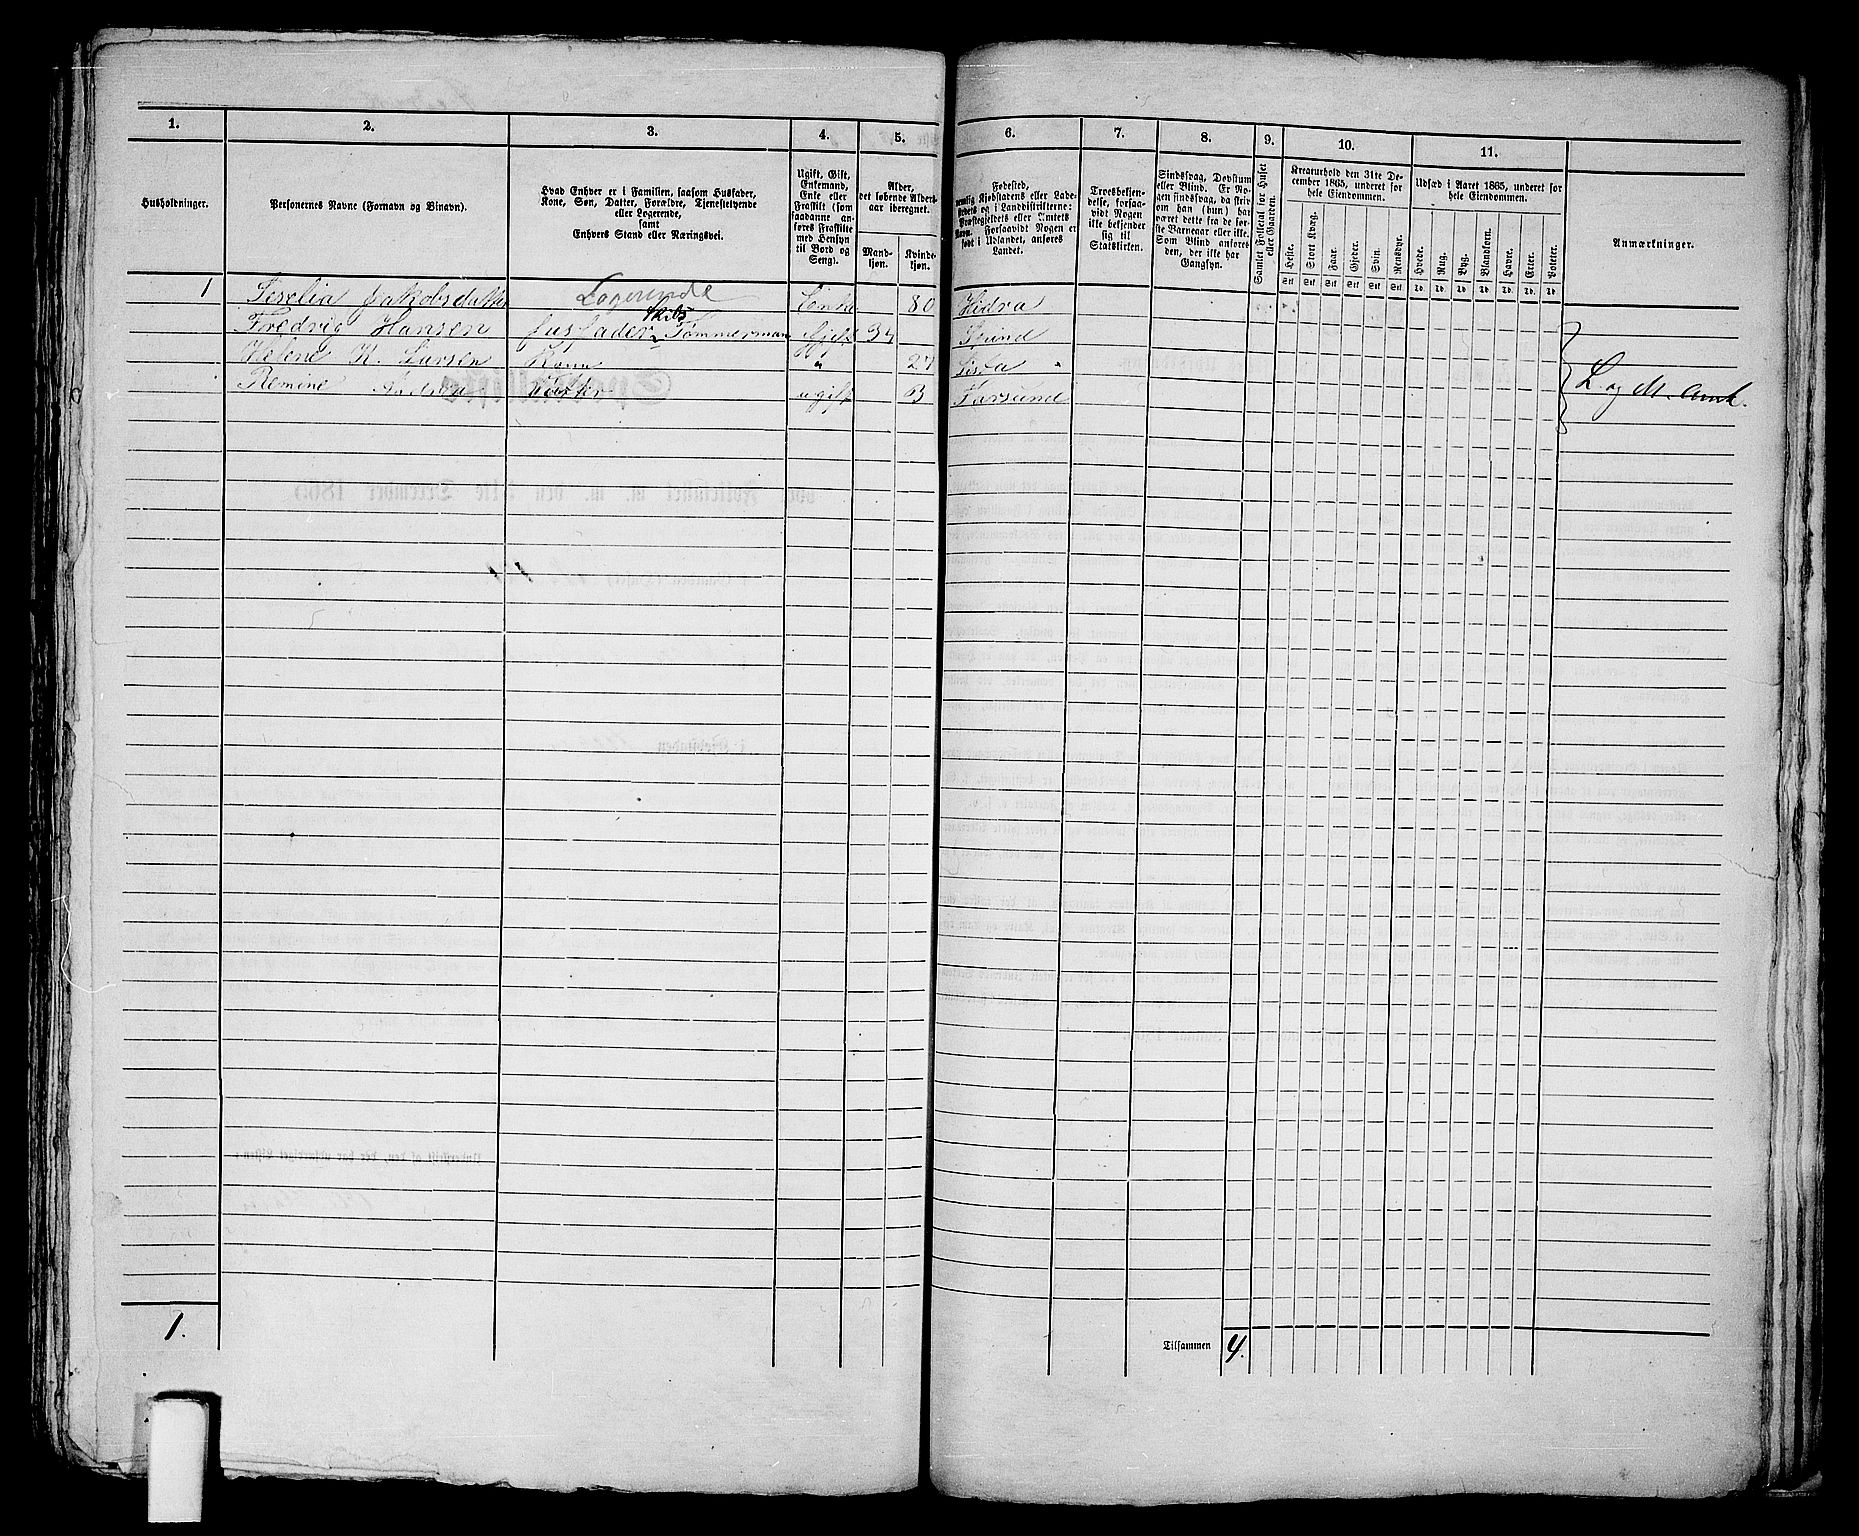 1. 2. 3. 4. 5. 6. 7. 8. 9. 10. 11.
Husholdninger.
Personernes Navne (Fornavn og Binavn).
Hvad Enhver er i Familien, saasom Husfader,
Kone, Søn, Datter, Forældre, Tjenestetyende
eller Logerende,
samt
Enhvers Stand eller Næringsvei.
Ugift, Gift,
Enkemand,
Enke eller
Fraskilt (som
saadanne an-
føres Fraskilte
med Hensyn
til Bord og
Seng).
Alder,
det løbende Alders-
aar iberegnet.
Mand-
kjøn.
Kvinde-
kjøn.
Fødested,
nemlig Kjøbstadens eller Lade-
stedets og i Landdistrikterne:
Præstegjeldets eller Amtets
Navn. Forsaavidt Nogen er
født i Udlandet, anføres
Landet.
Troesbekjen-
delse, forsaa-
vidt Nogen
ikke bekjender
sig til
Statskirken.
Sindssvag, Døvstum
eller Blind. Er No-
gen sindssvag, da skri-
ves om han (hun) har
været dette fra de før-
ste Barneaar eller ikke.
Som Blind anføres
den, der ikke har
Gangsyn.
Samlet Folketal for Huset
eller Gaarden.
Kreaturhold den 31te De-
cember 1865, underet for
hele Eiendommen.
Heste. Stort Kvæg. Faar. Gjeder. Svin. Rensdyr.
Udsæd i Aaret 1865, underet for
hele Eiendommen.
Hvede. Rug. Byg. Blandkorn. Havre. Erter. Poteter.
Anmærkninger.
Stk. Stk. Stk. Stk. Stk. Stk. Td. Td. Td. Td. Td. Td. Td.
1 Seselia Jakobsdatter Logerende Enke 80 Hidra
Fredrig Hansen Husfader Skibs Tømmermand Gift 34 Spind
Helene K. Larsen Kone " 27 Lista
Remine Andrea Datter ugift 3 Farsund
L. og M. Amt.
1.
Tilsammen 4.